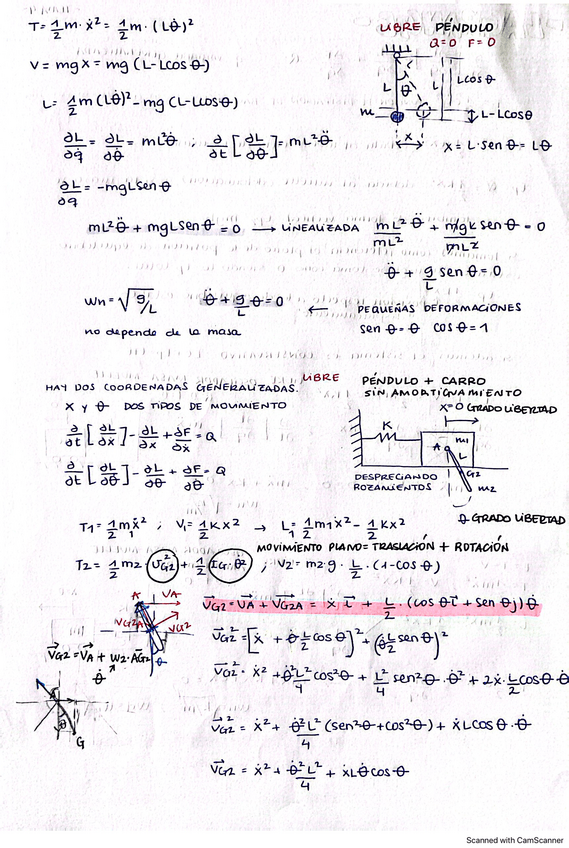 LIBRE PÉNDULO
a=0 F=0
T = 1/2 m · ẋ² = 1/2 m · (Lθ̇)²
V = mgx = mg (L-Lcos θ)
L = 1/2 m (Lθ̇)² - mg (L-Lcosθ)
L θ L Lcos θ
m L-Lcosθ
x x = L·sen θ = Lθ
∂L/∂q̇ = ∂L/∂θ̇ = mL²θ̇ ; ∂/∂t [∂L/∂θ̇] = mL²θ̈
∂L/∂q = -mgLsen θ
mL²θ̈ + mgLsen θ = 0 → LINEALIZADA mL²/mL² θ̈ + mgL sen θ/mL² = 0
θ̈ + g/L sen θ = 0
wn = √g/L θ̈ + g/L θ = 0 ← PEQUEÑAS DEFORMACIONES
no depende de la masa sen θ = θ cos θ = 1
HAY DOS COORDENADAS GENERALIZADAS.
X Y θ DOS TIPOS DE MOVIMIENTO
LIBRE PÉNDULO + CARRO
SIN AMORTIGUAMIENTO
x=0 GRADO LIBERTAD
∂/∂t [∂L/∂ẋ] - ∂L/∂x + ∂F/∂ẋ = Q
∂/∂t [∂L/∂θ̇] - ∂L/∂θ + ∂F/∂θ̇ = Q
K A m1 L G2 m2
DESPRECIANDO
ROZAMIENTOS
θ GRADO LIBERTAD
T1 = 1/2 m1 ẋ² ; V1 = 1/2 Kx² → L1 = 1/2 m1 ẋ² - 1/2 Kx²
MOVIMIENTO PLANO = TRASLACIÓN + ROTACIÓN
T2 = 1/2 m2 · vG2² + 1/2 IG · θ̇² ; V2 = m2·g · L/2 · (1-cos θ)
A VA
VG2A VG2
θ
VG2 = VA + VG2A = ẋ i + L/2 · (cos θi + sen θj) θ̇
VG2² = [ẋ + θ̇ L/2 cos θ]² + (θ̇ L/2 sen θ)²
VG2 = VA + w2 · AG2
θ̇
VG2² = ẋ² + θ̇² L²/4 cos²θ + L²/4 sen²θ · θ̇² + 2ẋ · L/2 cosθ · θ̇
A θ G
VG2² = ẋ² + θ̇²L²/4 (sen²θ + cos²θ) + ẋLcos θ · θ̇
VG2 = ẋ² + θ̇²L²/4 + ẋLθ̇ cos θ
Scanned with CamScanner